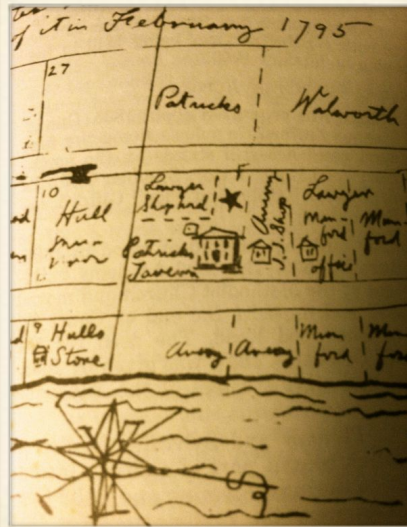 of it in February 1795
27
Patricks
Walworth
10
Hull
Lawyer
Shepard
Avery
J. Shop
Lawyer
Mum
ford
offic
Mum
ford
Patricks
Tavern
9 Hulls
Store
Avery
Avery
Mum
ford
S